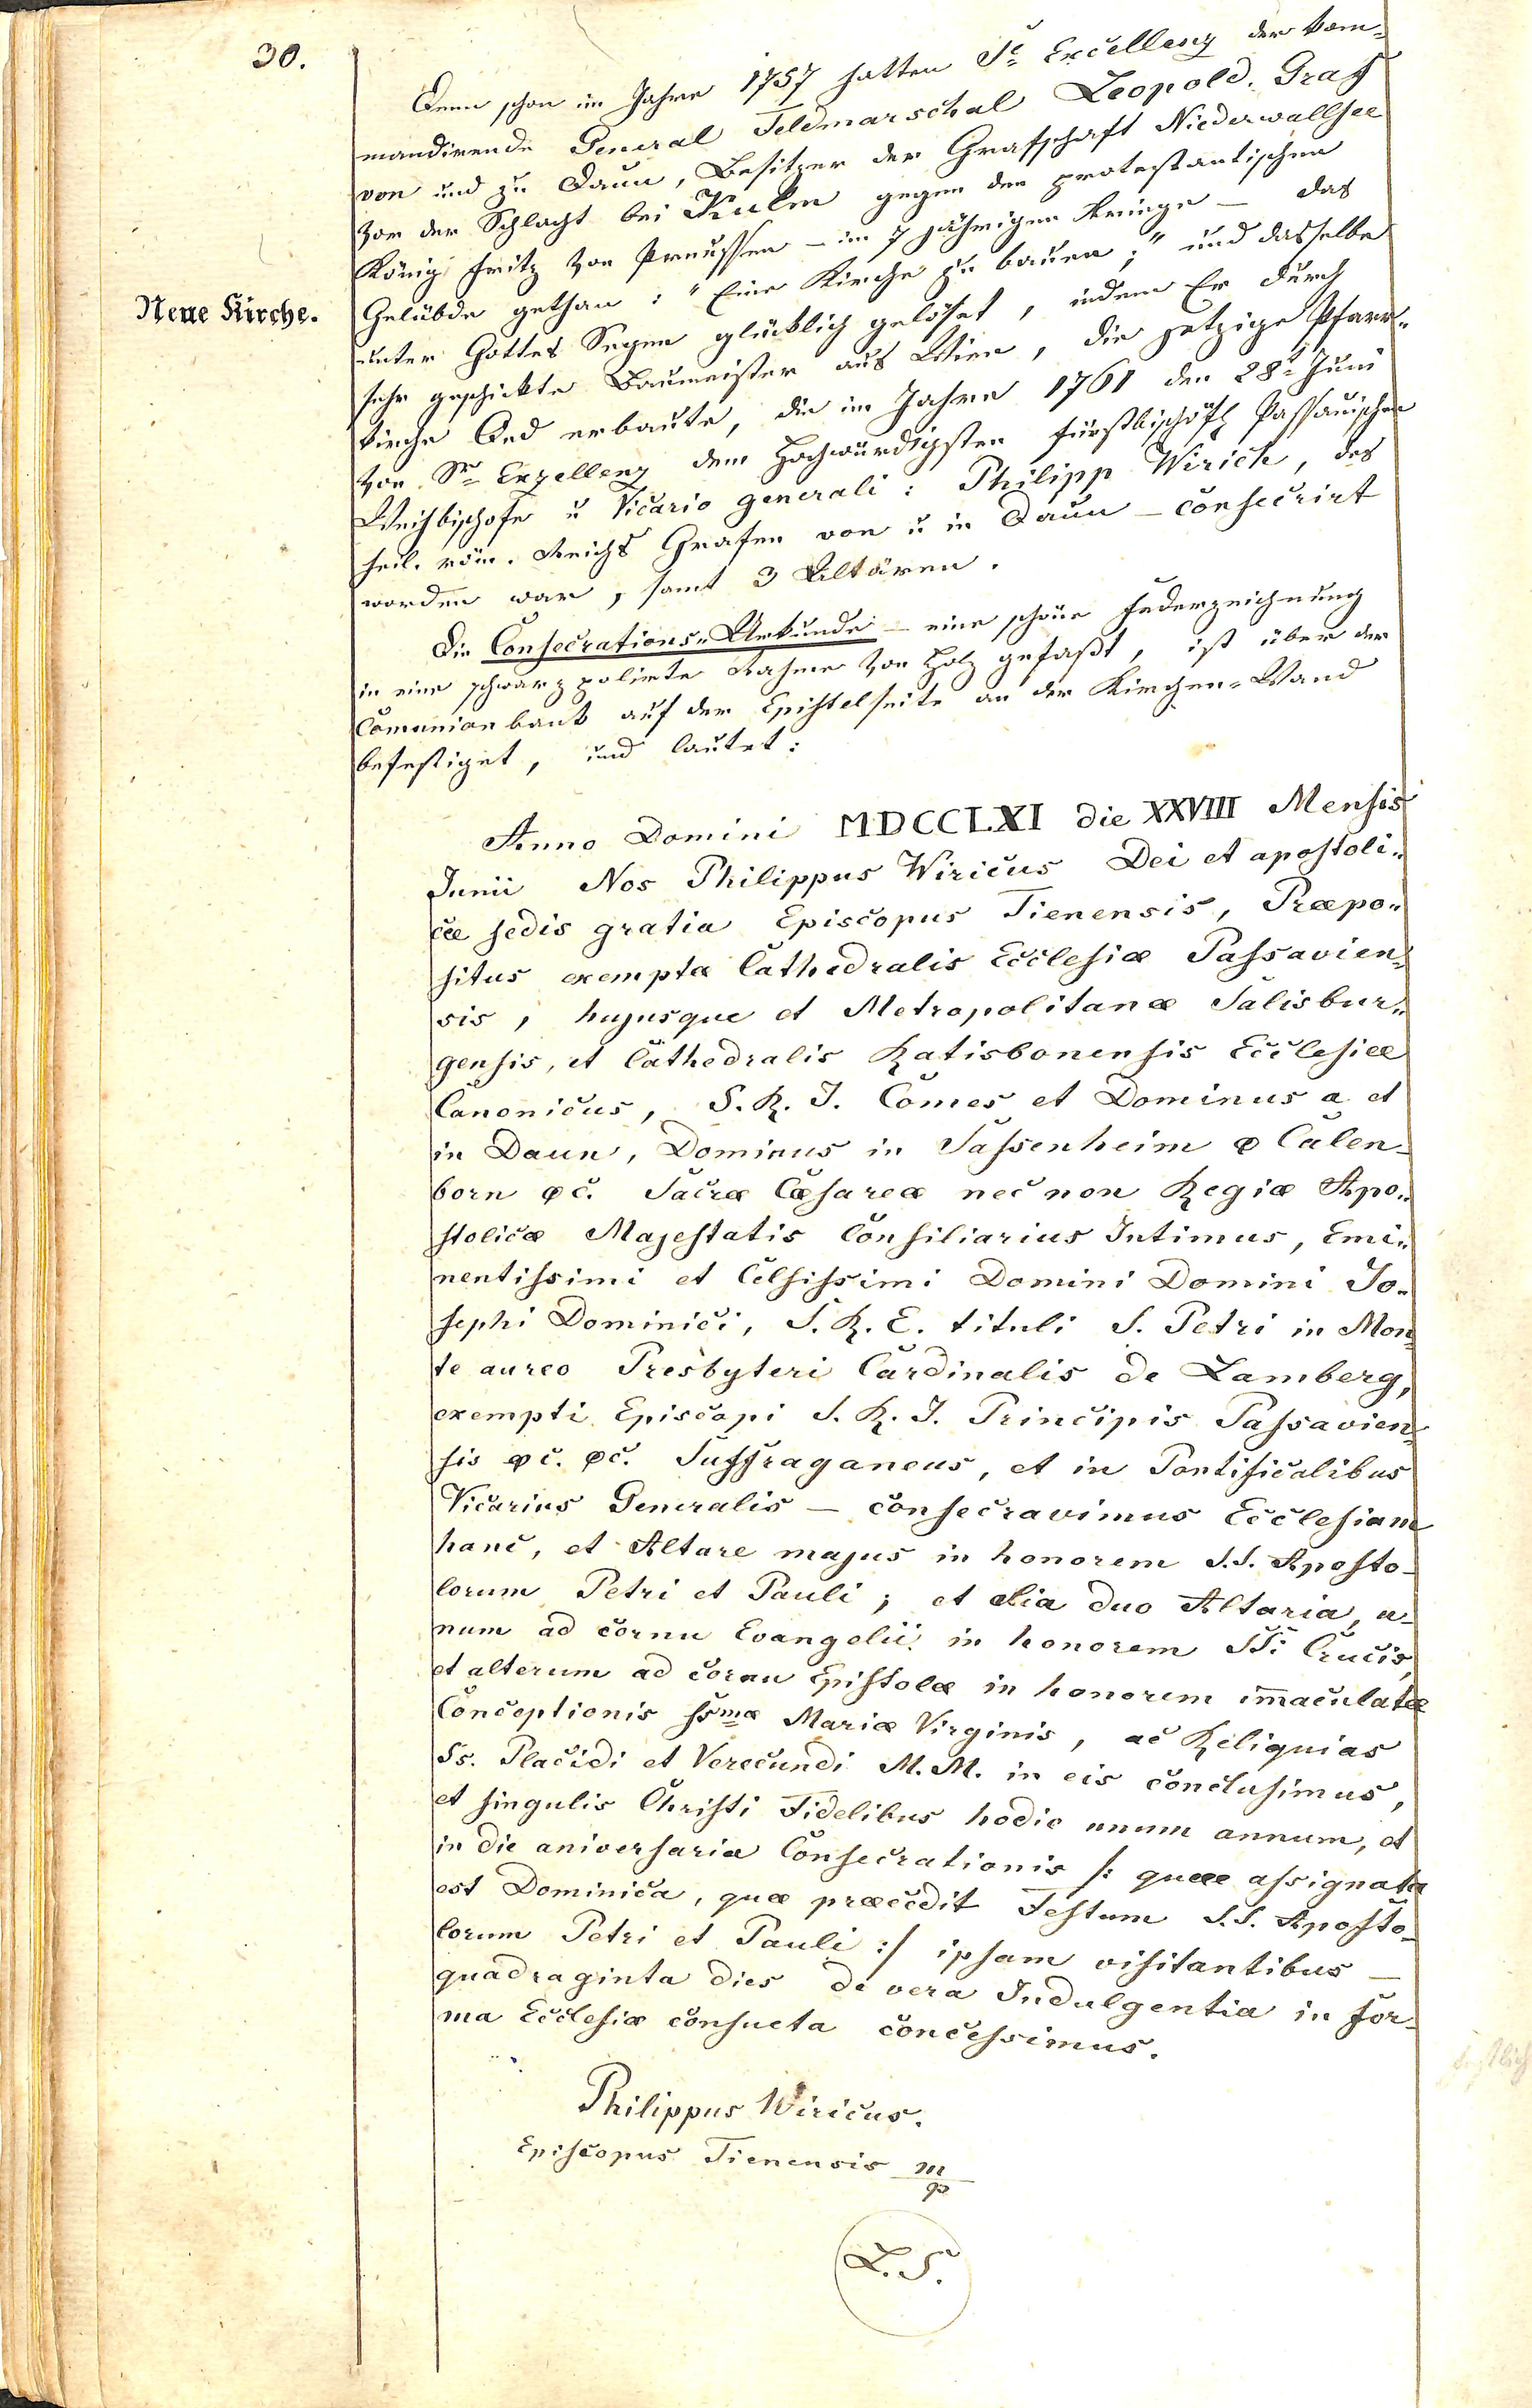 30.
Denn schon im Jahre 1757 hatten Se Excellenz der kom-
mandirende General Feldmarschal Leopold. Graf
von und zu Daun, Besitzer der Grafschaft Niederwallsee
vor der Schlacht bei Kulm gegen den protestantischen
König Fritz von Preussen – im 7 jährigen Kriege – das
Gelübde gethan: "Eine Kirche zu bauen;" und dasselbe
Neue Kirche.
unter Gottes Segen glücklich gelöset, indem Er durch
sehr geschickte Baumeister aus Wien, die jetzige Pfarr-
kirche Oed erbaute, die im Jahre 1761 den 28t Juni
von Sr Exzellenz dem Hochwürdigsten fürstbischöfl Passauischen
Weihbischofe u Vicario generali: Philipp Wirich, des
heil. röm. Reichs Grafen von u in Daun – consecrirt
worden war, samt 3 Altären.
Die Consecrations-Urkunde – eine schöne Federzeichnung
in eine schwarz polirte Rahme von Holz gefaßt, ist über der
Comunionbank auf der Epistelseite an der Kirchen-Wand
befestiget, und lautet:
Anno Domini MDCCLXI die XXVIII Mensis
Junii Nos Philippus Wiricus Dei et apostoli-
cæ sedis gratia Episcopus Tienensis, Præpo-
situs exemptæ Cathedralis Ecclesiæ Passavien-
sis, hujusque et Metropolitanæ Salisbur-
gensis, et Cathedralis Ratisbonensis Ecclesiæ
Canonicus, S. R. I. Comes et Dominus a et
in Daun, Dominus in Sassenheim & Calen-
born &c. Sacræ Cæsareæ nec non Regiæ Apo-
stolicæ Majestatis Consiliarius Intimus, Emi-
nentissimi et Celsissimi Domini Domini Jo-
sephi Dominici, S. R. E. tituli S. Petri in Mon-
te aureo Presbyteri Cardinalis de Lamberg,
exempti Episcopi S. R. I. Principis Passavien-
sis &c. &c. Suffraganeus, et in Pontificalibus
Vicarius Generalis – consecravimus Ecclesiam
hanc, et Altare majus in honorem S.S. Aposto-
lorum Petri et Pauli; et alia duo Altaria, u-
num ad cornu Evangelii in honorem SSi Crucis,
et alterum ad cornu Epistolæ in honorem im̄aculatæ
Conceptionis Ssmæ Mariæ Virginis, ac Reliquias
Ss. Placidi et Verecundi M. M. in eis conclusimus,
et singulis Christi Fidelibus hodie unum annum, et
in die aniversaria Consecrationis /: quæ assignata
est Dominica, quæ præcedit Festum S.S. Aposto-
lorum Petri et Pauli :/ ipsam visitantibus –
quadraginta dies de vera Indulgentia in for-
ma Ecclesiæ consueta concessimus.
Philippus Wiricus.
Episcopus Tienensis m/p
L. S.